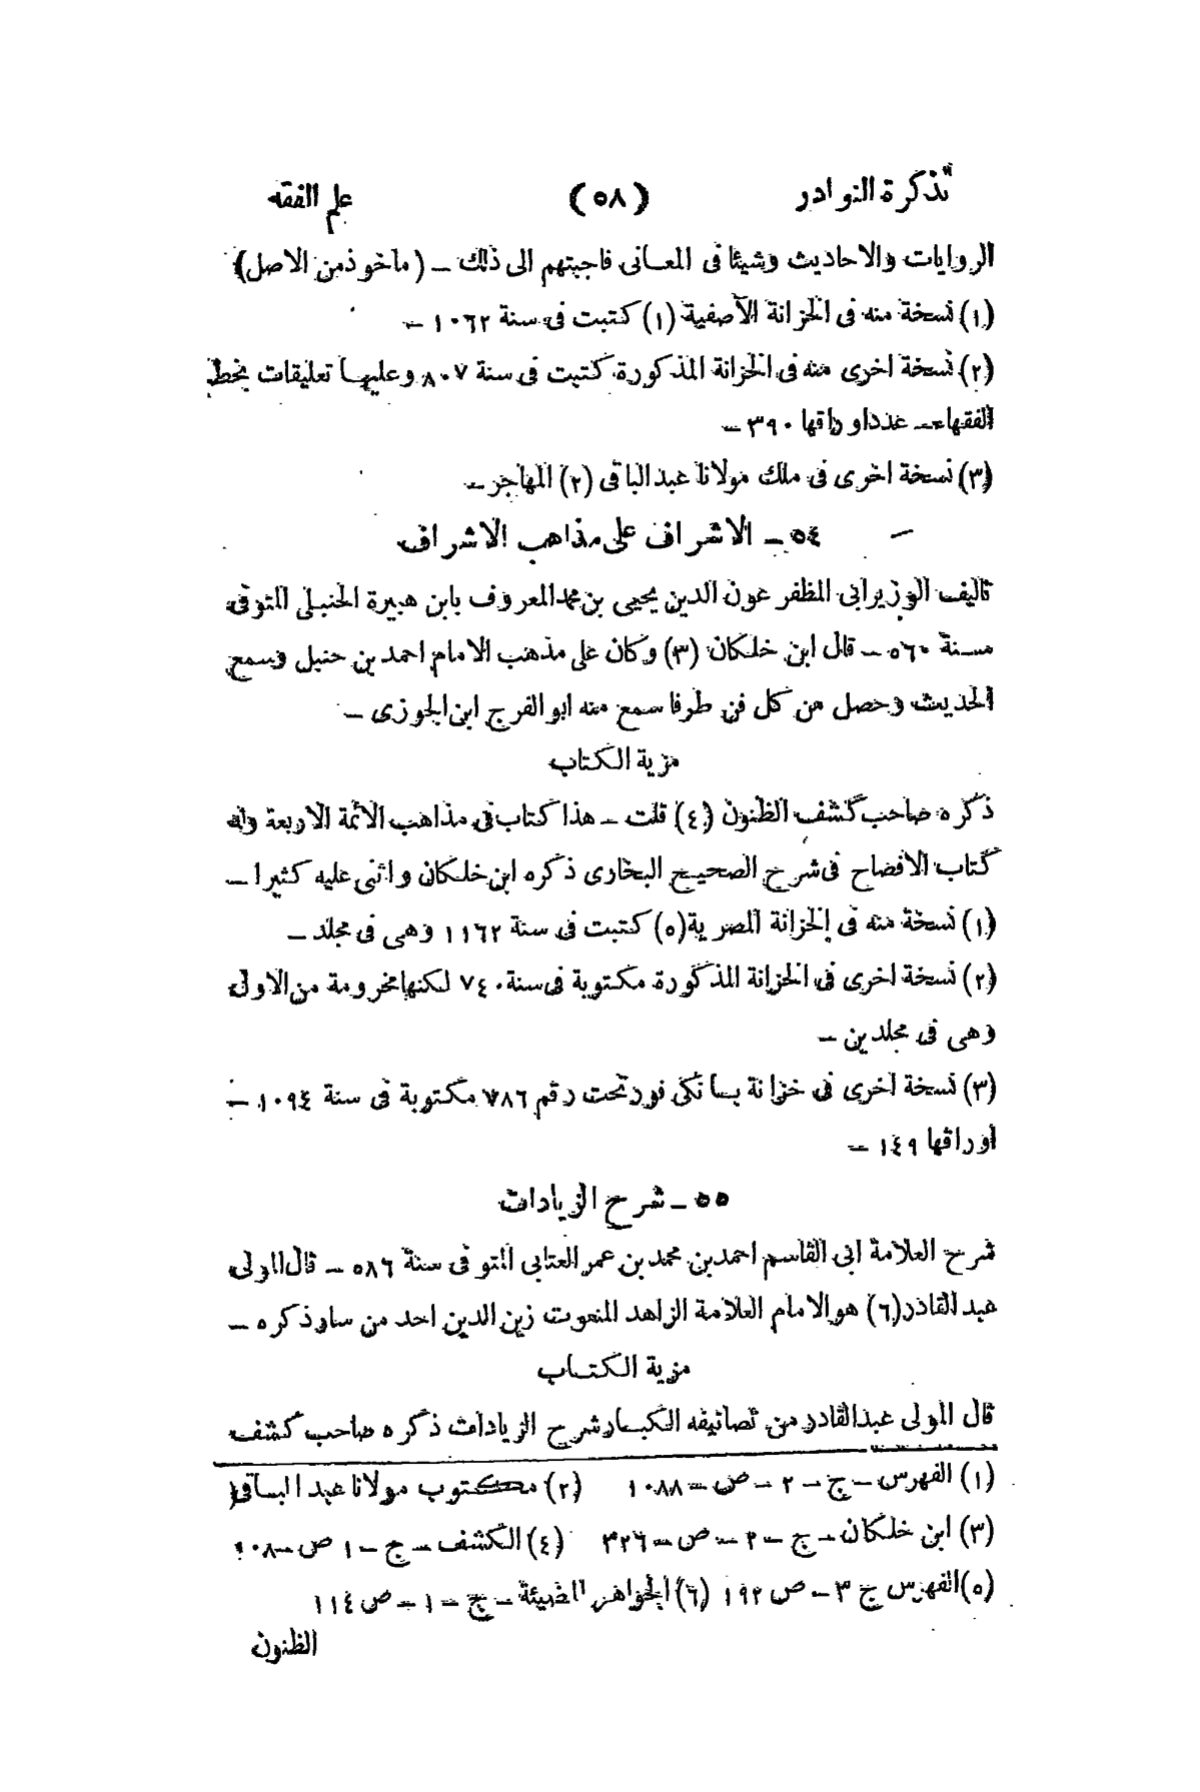 تذكرة النوادر (٥٨) علم الفقه
الروايات والاحاديث وشيئا فى المعانى فاجبتهم الى ذلك ــ (ماخوذ من الاصل)
(١) نسخة منه فى الخزانة الآصفية (١) كتبت فى سنة ١٠٦٢ ــ
(٢) نسخة اخرى منه فى الخزانة المذكورة كتبت فى سنة ٨٠٧ وعليها تعليقات بخط
الفقهاء ــ عدد اوراقها ٣٩٠ ــ
(٣) نسخة اخرى فى ملك مولانا عبد الباقى (٢) المهاجر ــ
٥٤ ــ الاشراف على مذاهب الاشراف
تاليف الوزير ابى المظفر عون الدين يحيى بن محمد المعروف بابن هبيرة الحنبلى المتوفى
سنة ٥٦٠ ــ قال ابن خلكان (٣) وكان على مذهب الامام احمد بن حنبل وسمع
الحديث وحصل من كل فن طرفا سمع منه ابو الفرج ابن الجوزى ــ
مزية الكتاب
ذكره صاحب كشف الظنون (٤) قلت ــ هذا كتاب فى مذاهب الائمة الاربعة وله
كتاب الافصاح فى شرح الصحيح البخارى ذكره ابن خلكان واثنى عليه كثيرا ــ
(١) نسخة منه فى الخزانة المصرية (٥) كتبت فى سنة ١١٦٢ وهى فى مجلد ــ
(٢) نسخة اخرى فى الخزانة المذكورة مكتوبة فى سنة ٧٤٠ لكنها مخرومة من الاول
وهى فى مجلدين ــ
(٣) نسخة اخرى فى خزانة بانكى فور تحت رقم ٧٨٦ مكتوبة فى سنة ١٠٩٤ ــ
اوراقها ١٤٩ ــ
٥٥ ــ شرح الزيادات
شرح العلامة ابى القاسم احمد بن محمد بن عمر العتابى المتوفى سنة ٥٨٦ ــ قال المولى
عبد القادر (٦) هو الامام العلامة الزاهد المنعوت زين الدين احد من سار ذكره ــ
مزية الكتاب
قال المولى عبد القادر من تصانيفه الكبار شرح الزيادات ذكره صاحب كشف
(١) الفهرس ــ ج ــ ٢ ــ ص ــ ١٠٨٨ (٢) مكتوب مولانا عبد الباقى
(٣) ابن خلكان ــ ج ــ ٢ ــ ص ــ ٣٢٦ (٤) الكشف ــ ج ــ ١ ص ــ
(٥) الفهرس ج ٣ ــ ص ١٩٢ (٦) الجواهر المضيئة ــ ج ــ ١ ــ ص ١١٤
الظنون